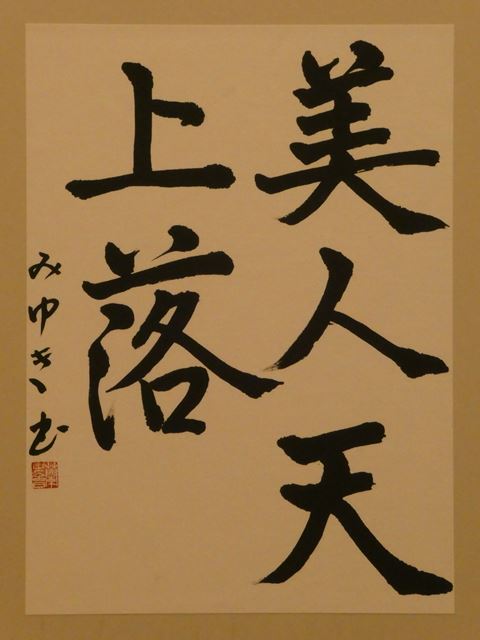 美人天
上落
みゆき書